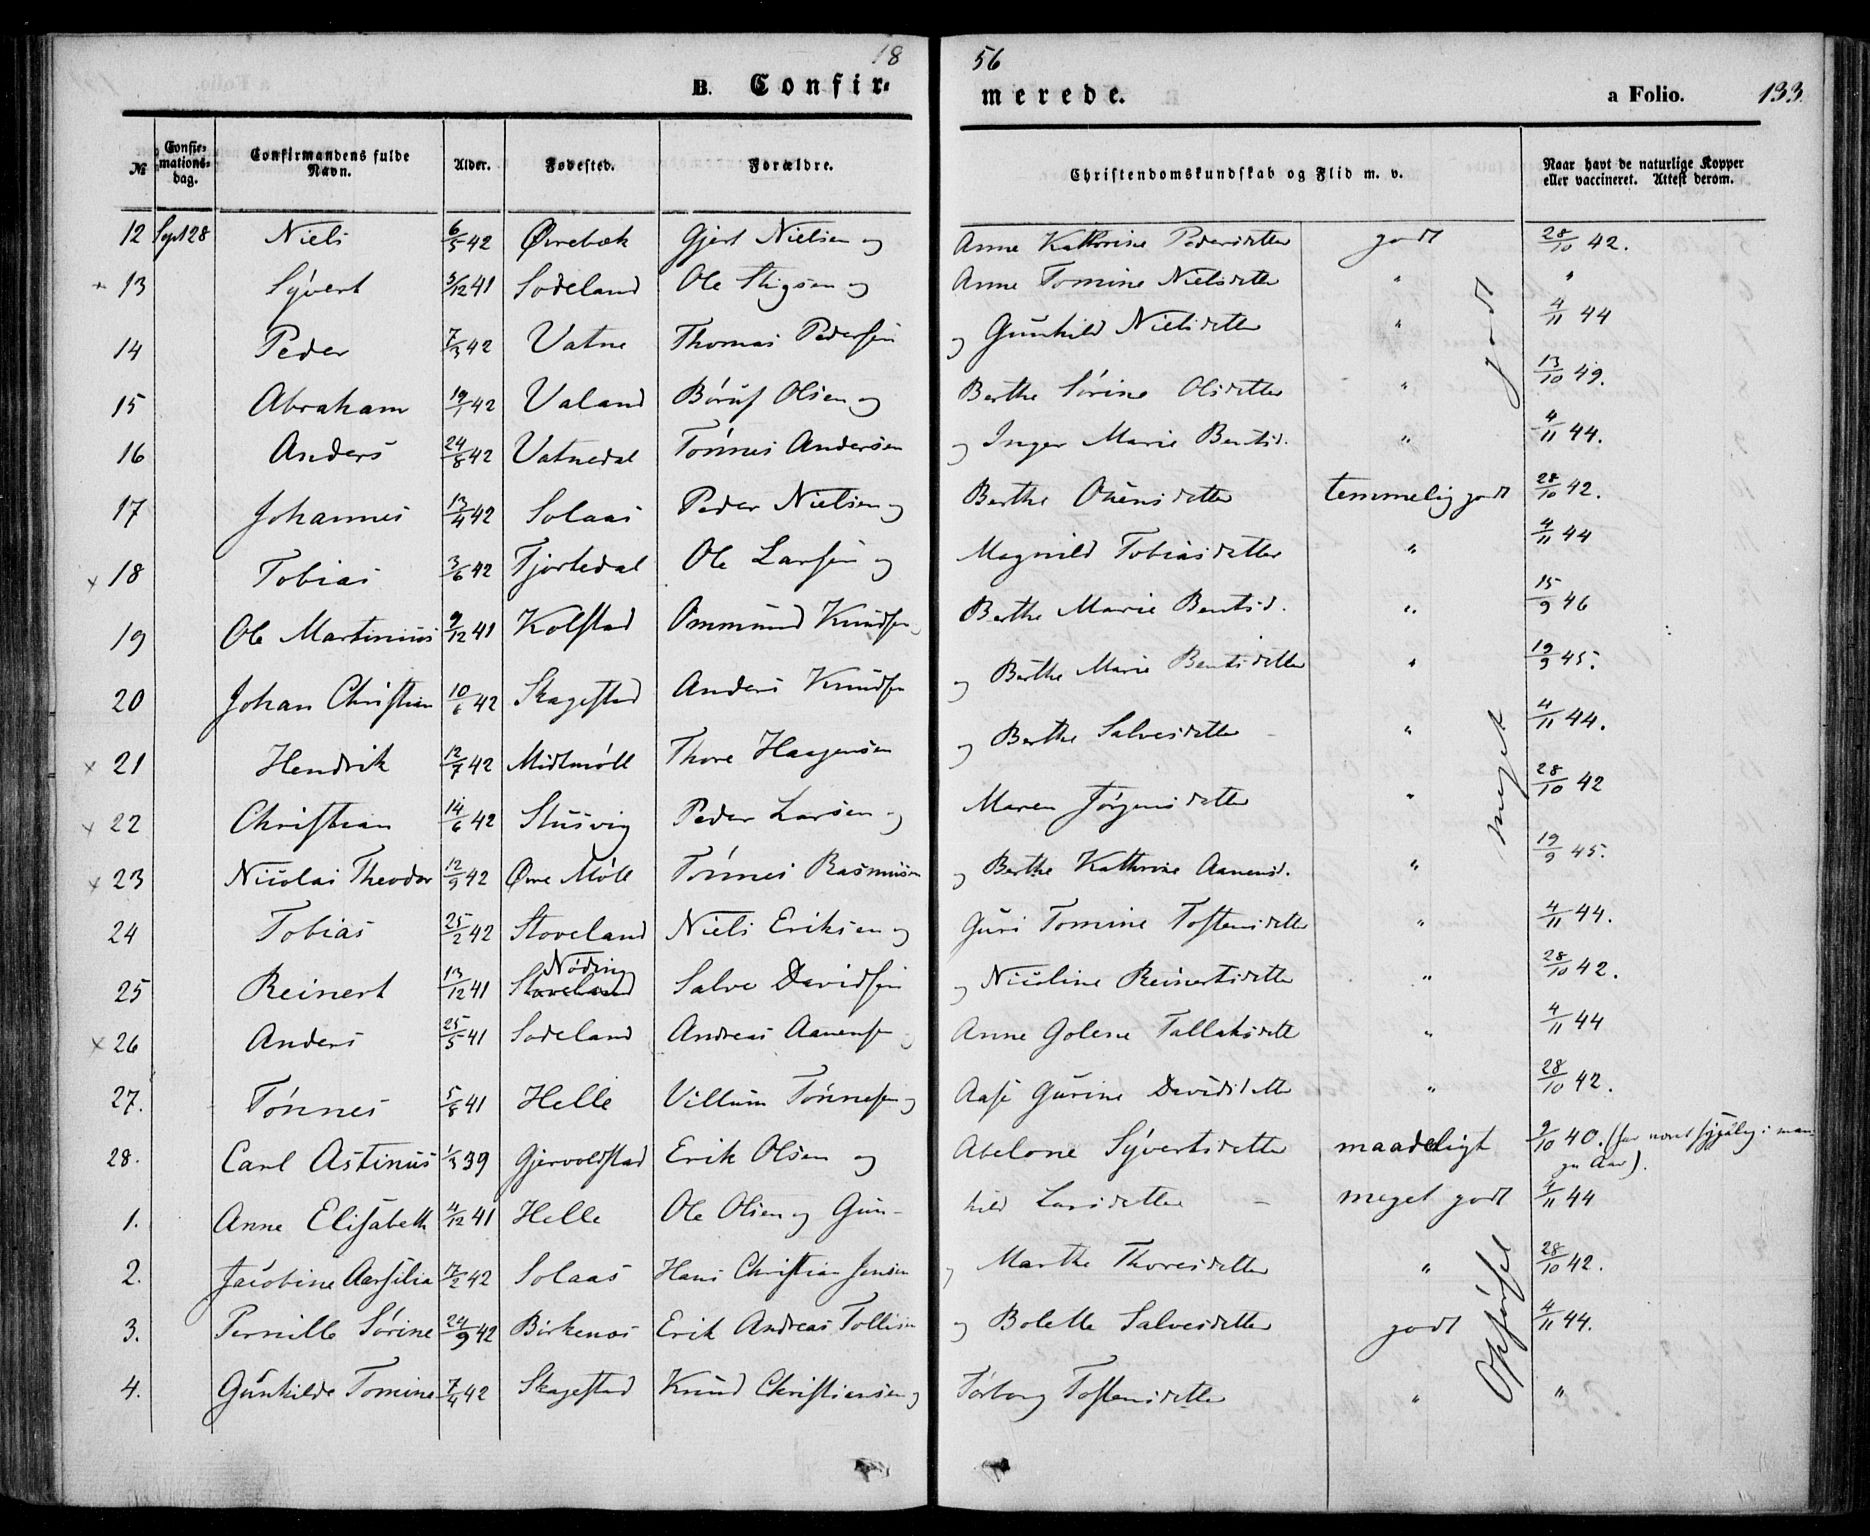 18 56
B. Confir- merede. a Folio. 133
№ Confir-mations-dag. Confirmandens fulde Navn. Alder. Fødested. Forældre. Christendomskundskab og Flid m. v. Naar havt de naturlige Kopper eller vaccineret. Attest derom.
12 Sept 28 Niels 6/5 42 Øvrebæk Gjert Nielsen og Anne Kathrine Pedersdatter godt 28/10 42.
× 13 Sÿvert 3/12 41 Sodeland Ole Stigsen og Anne Tomine Nielsdatter " "
14 Peder 7/3 42 Vatne Thomas Pedersen og Gunhild Nielsdatter " 4/11 44
15 Abraham 19/1 42 Valand Børuf Olsen og Berthe Sørine Olsdatter " 13/10 49.
16 Anders 24/8 42 Vatnedal Tønnes Andersen og Inger Marie Bentsd. " 4/11 44.
17 Johannes 13/4 42 Solaas Peder Nielsen og Berthe datter temmelig godt 28/10 42.
× 18 Tobias 3/6 42 Tjortedal Ole Larsen og Magnild Tobiasdatter " 4/11 44
19 Ole Martinius 9/12 41 Kolstad Ommund Knudsen og Berthe Marie Bentsd. " 15/9 46
20 Johan Christian 10/6 42 Skagestad Anders Knudsen og Berthe Marie Bentsdatter " 19/9 45.
× 21 Hendrik 12/7 42 Midtmøll Thore Haagensen og Berthe Salvesdatter " 4/11 44.
× 22 Christian 14/6 42 Stusvig Peder Larsen og Maren Jørgensdatter " 28/10 42
× 23 Nicolai Theodor 12/9 42 Øvre Møll Tønnes Rasmussen og Berthe Kathrine Aanensd. " 19/9 45.
24 Tobias 25/2 42 Stoveland Niels Eriksen og Guri Tomine Tostensdatter " 4/11 44.
25 Reinert 13/12 41 Stoveland Nøding Salve Davidsen og Nicoline Reinertsdatter " 28/10 42.
× 26 Anders 25/5 41 Sodeland Andreas Aanensen og Anne Golene Tallaksdatt " 4/11 44
27. Tønnes 5/8 41 Helle Villum Tønnesen og Aase Gurine Davidsdatt " 28/10 42.
28. Carl Astinus 1/3 39 Gjervoldstad Erik Olsen og Abelone Sÿvertsdatter maadeligt 9/10 40. (har været sygelig i man-
ge Aar).
1. Anne Elisabeth 4/12 41 Helle Ole Olsen og Gun- hild Larsdatter meget godt 4/11 44
2. Jacobine Aarsilia 17/2 42 Solaas Hans Christian Jensen og Marthe Thoresdatter " 28/10 42.
3. Pernille Sørine 24/9 42 Birkenes Erik Andreas Tollisen og Bolette Salvesdatter godt 4/11 44.
4. Gunhilde Tomine 7/4 42 Skagestad Knud Christiansen og Torborg Tostensdatter " "
meget godt
Opførsel